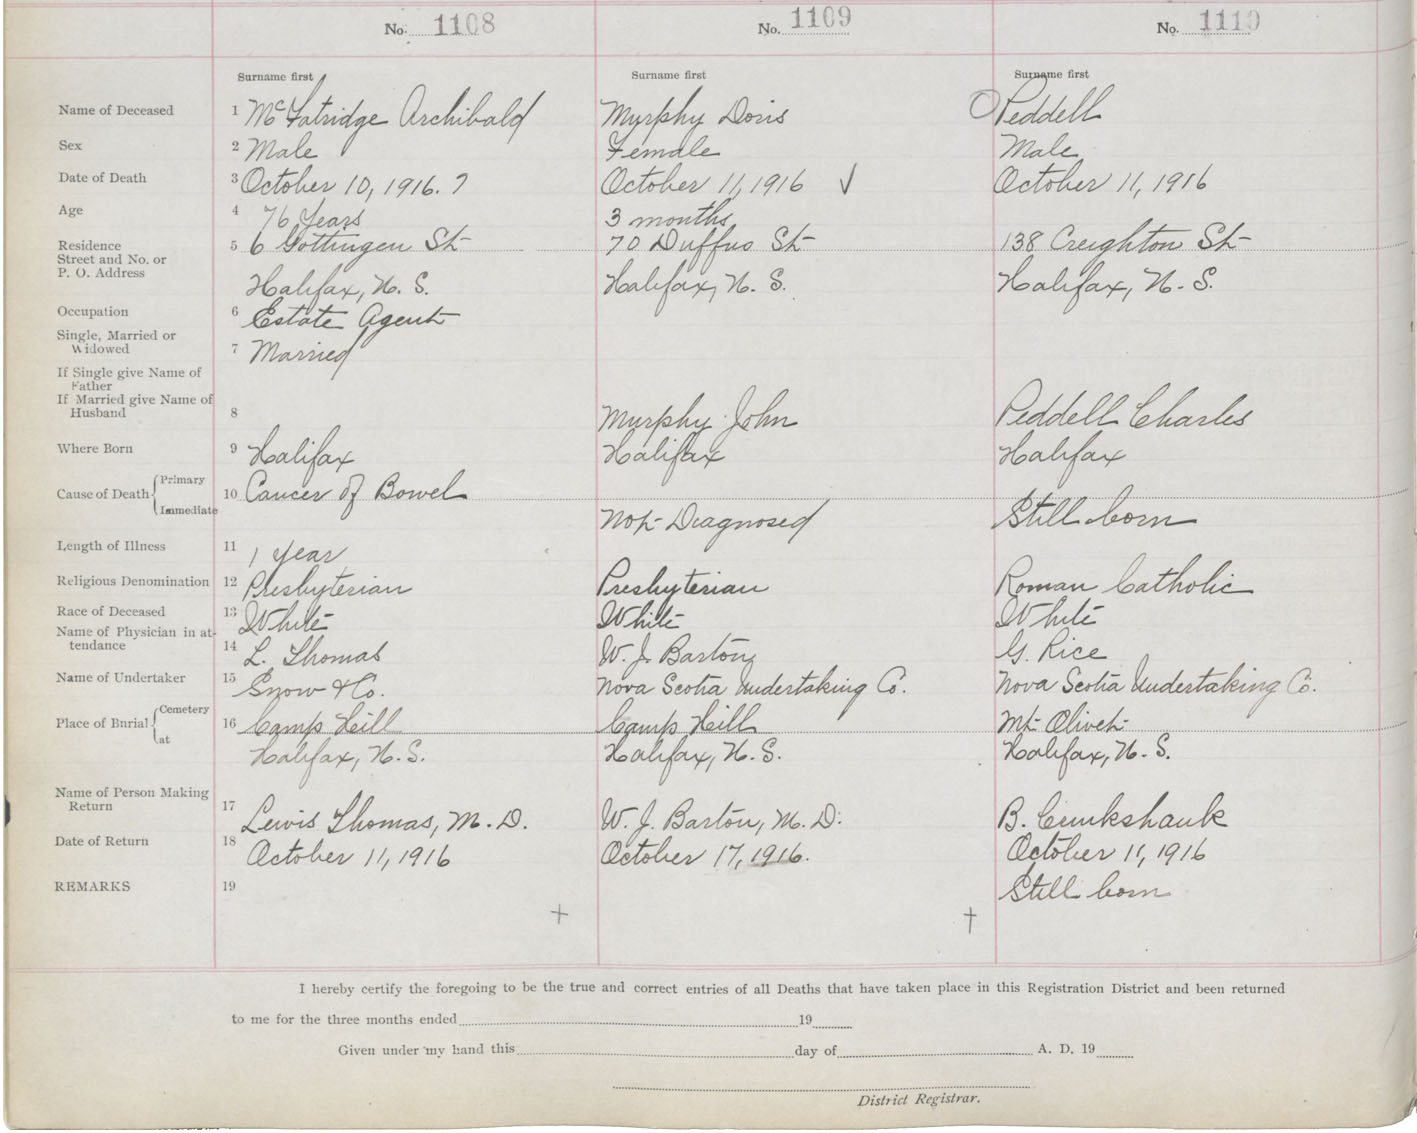 No. 1108 No. 1109 No. 1110
Surname first Surname first Surname first
Name of Deceased 1 McFatridge Archibald Myrphy Doris Peddell
Sex 2 Male Female Male
Date of Death 3 October 10, 1916. 7 October 11, 1916 √ October 11, 1916
Age 4 76 Years 3 months
Residence 5 6 Gottingen St 70 Duffus St 138 Creighton St
Street and No. or
P. O. Address Halifax, N. S. Halifax, N. S. Halifax, N. S.
Occupation 6 Estate Agent
Single, Married or
Widowed 7 Married
If Single give Name of
Father
If Married give Name of
Husband 8 Murphy John Peddell Charles
Where Born 9 Halifax Halifax Halifax
Primary
Cause of Death 10 Cancer of Bowel
Immediate Not Diagnosed Still born
Length of Illness 11 1 year
Religious Denomination 12 Presbyterian Presbyterian Roman Catholic
Race of Deceased 13 White White White
Name of Physician in at-
tendance 14 L. Thomas W. J. Barton G. Rice
Name of Undertaker 15 Snow & Co. Nova Scotia Undertaking Co. Nova Scotia Undertaking Co.
Cemetery
Place of Burial 16 Camp Hill Camp Hill Mt Olivet
at Halifax, N. S. Halifax, N. S. Halifax, N. S.
Name of Person Making
Return 17 Lewis Thomas, M. D. W. J. Barton, M. D. B. Cruikshank
Date of Return 18 October 11, 1916 October 17, 1916. October 11, 1916
REMARKS 19 Still born
I hereby certify the foregoing to be the true and correct entries of all Deaths that have taken place in this Registration District and been returned
to me for the three months ended 19
Given under my hand this day of A. D. 19
District Registrar.